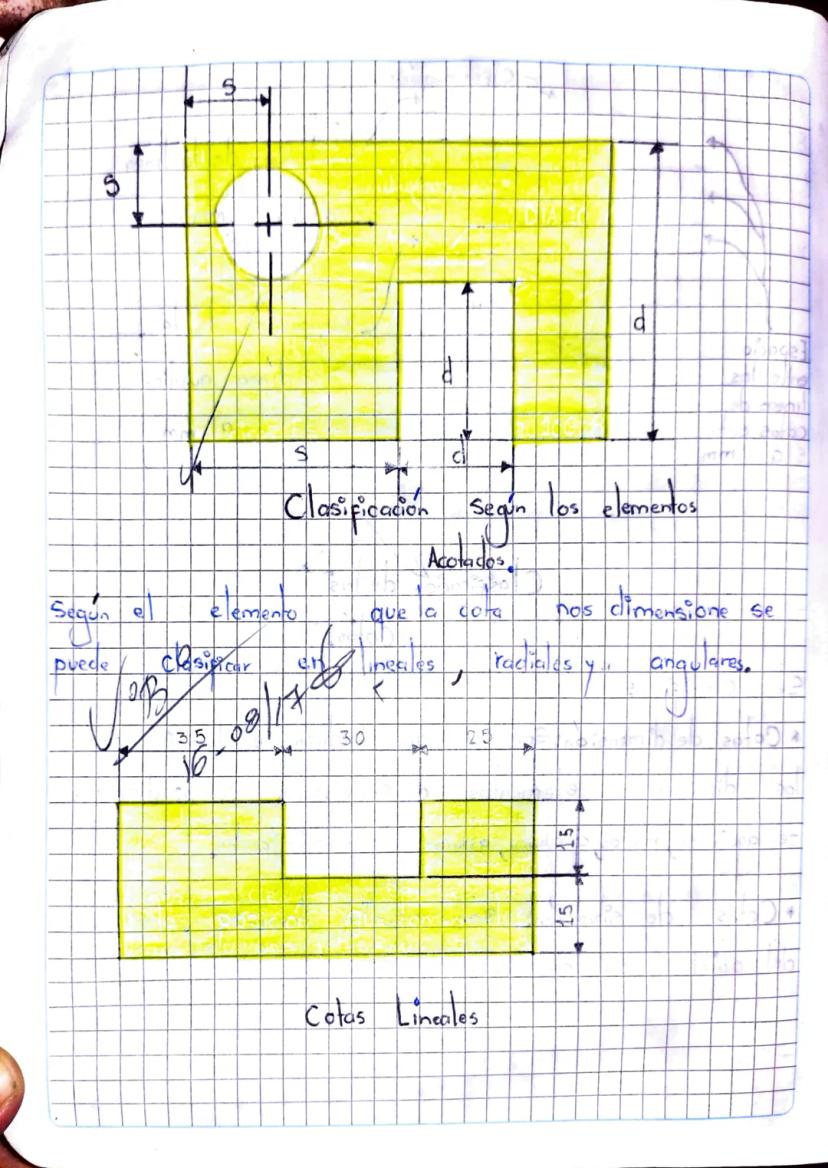 S
S
d
d
S
d
Clasificación según los elementos
Acotados.
Según el elemento que la cota nos dimensione se
puede clasificar en lineales, radiales y angulares.
35
30
25
15
15
Cotas Lineales